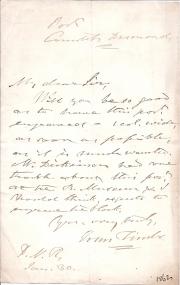 Port.
Countess Desmond.
My dear Sir,
Will you be so good
as to have this port.
engraved a col. wide,
as soon as possible,
as it is much wanted.
Mr. Dickinson had some
trouble about this port.
at the B. Museum &
should think, expects to
the block.
Yours very truly,
John Timbs
Jan. 30.
1862